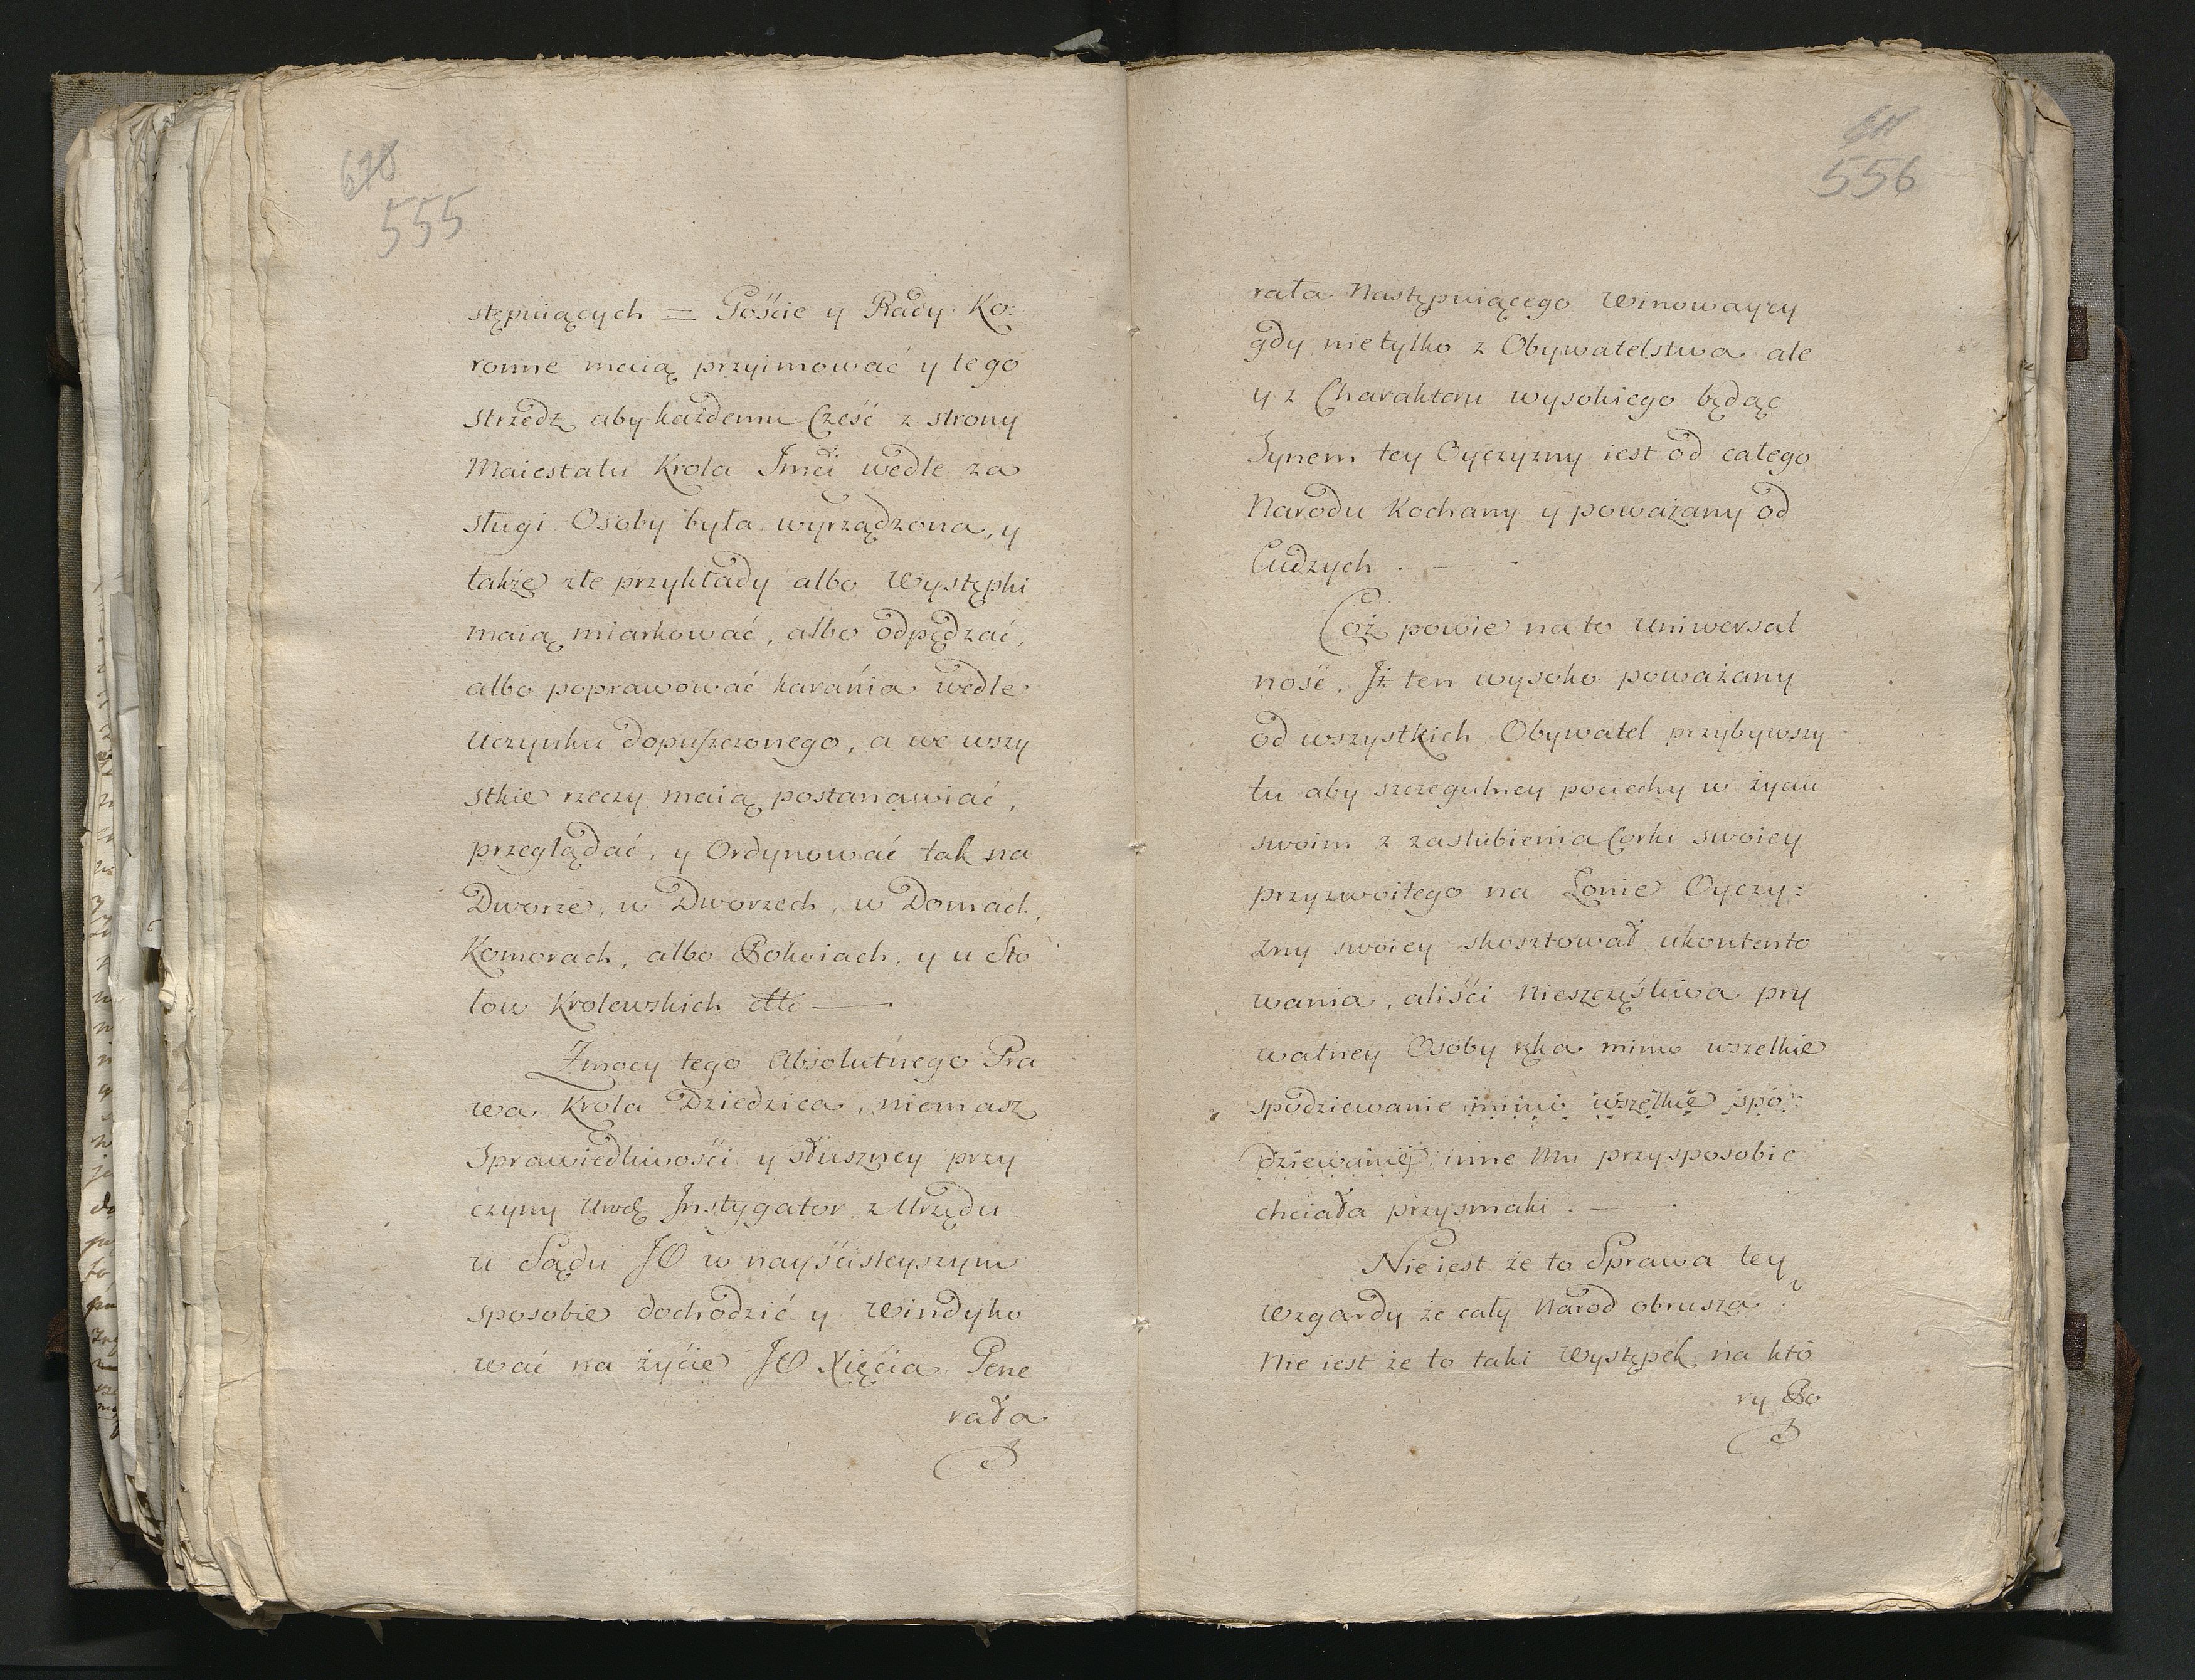 610
555
stępuiących = Gośćie y Rady Ko:
ronne maią przyimować y tego
strzedz aby każdemu Cześć z strony
Maiestatu Krola Jmći wedle za
sługi Osoby była wyrządzona, y
także złe przykłady albo Występki
maią miarkować, albo odpędzać,
albo poprawować karánia wedle
Uczynku dopuszczonego, a we wszy
stkie rzeczy maią postanawiać,
przeglądać, y Ordynować tak na
Dworze, w Dworzech, w Domach,
Komorach, albo Pokoiach, y u Sto
łow Krolewskich ettc ——
Zmocy tego Absolutnego Pra
wa Krola Dziedzica, niemasz
Sprawiedliwośći y słuszney przy
czyny Urodz Jnstygator z Urzędu
u Sądu JO w nayśćisleyszym
sposobie dochodzić y Windyko
wać na żyćie JO Xięćia Gene
rała
611
556
rała Następuiącego Winowaycy
gdy nietylko z Obywatelstwa ale
y z Charakteru wysokiego będąc
Synem tey Oyczyzny iest od całego
Narodu Kochany y poważany od
Cudzych . –
Coż powie na to Uniwersal
ność, Jż ten wysoko poważany
od wszystkich Obywatel przybywszy
tu aby szczegulney poćiechy w żyćiu
swoim z zaslubienia Corki swoiey
przyzwoitego na Łonie Oyczy:
zny swoiey skosztował ukontento
wania, aliśći Nieszczęśliwa pry
watney Osoby ręka mimo wszelkie
spodziewanie mimo wszelkie spo:
dziewanie inne Mu przysposobic
chciała przysmaki . ——
Nie iest że to Sprawa tey
Wzgardy że cały Narod obrusza ?
Nie iest że to taki Występek na ktò
ry Bo